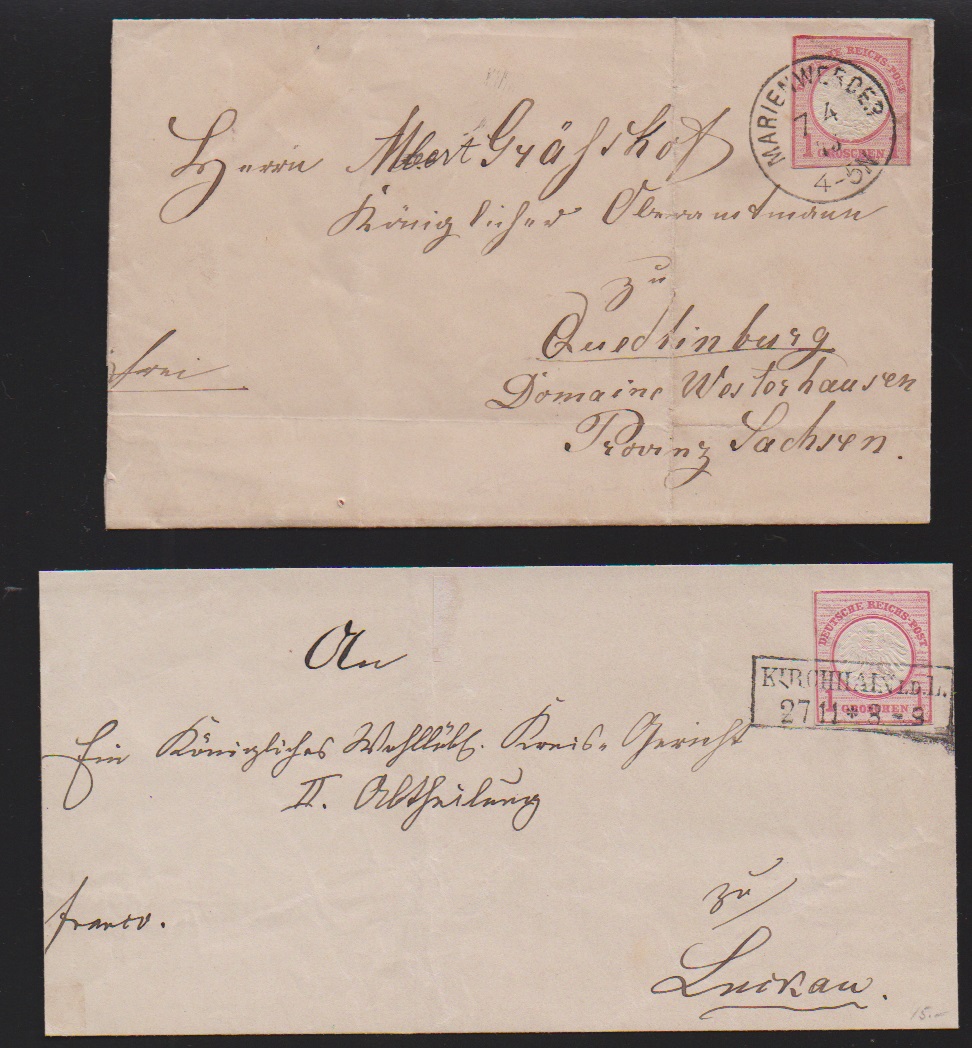 DEUTSCHE REICHS-POST
1 GROSCHEN 1
MARIENWERDER
7 4
4-5N
Herrn Albert Gräfshof
Königlicher Oberamtmann
zu
Quedlinburg
Domaine Westerhausen
Provinz Sachsen.
frei
DEUTSCHE REICHS-POST
1 GROSCHEN 1
KIRCHHAIN I.D.L.
27 11 * 8-9
An
Ein Königliches Wohllöbl. Kreis-Gericht
II. Abtheilung
zu
Luckau.
franco.
15.-